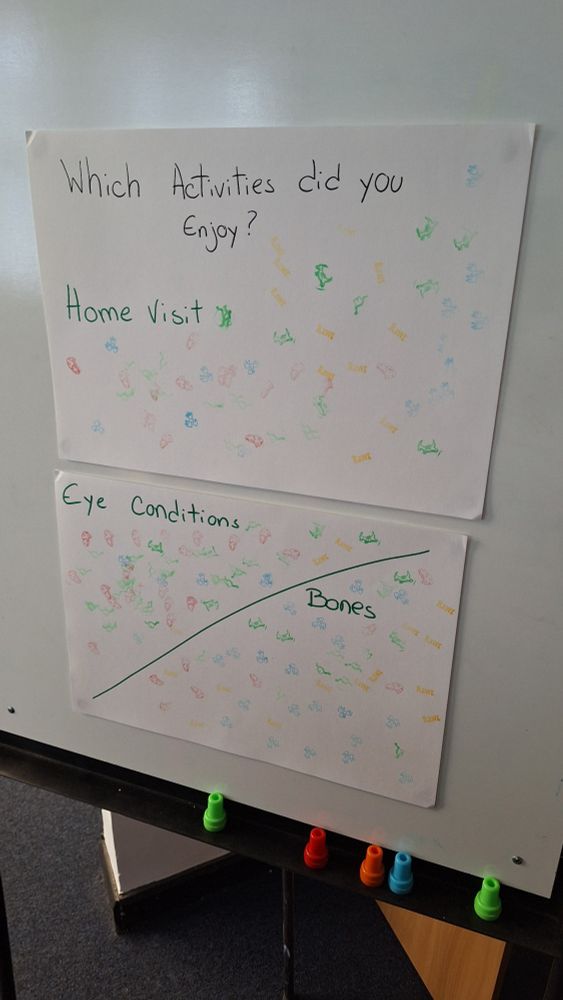 Which Activities did you
Enjoy?
Home Visit
Eye Conditions
Bones